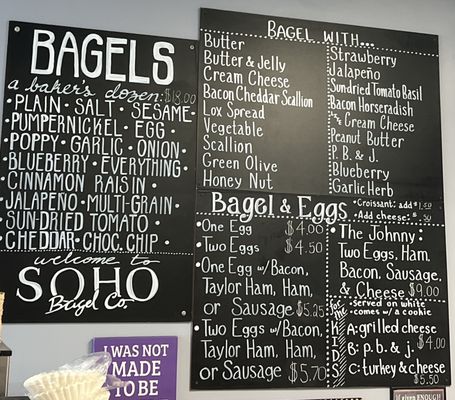 BAGELS
a baker's dozen: $18.00
• PLAIN • SALT • SESAME •
PUMPERNICKEL • EGG •
POPPY • GARLIC • ONION
BLUEBERRY • EVERYTHING
• CINNAMON RAISIN •
JALAPEÑO • MULTI-GRAIN
• SUN-DRIED TOMATO •
CHEDDAR • CHOC. CHIP •
welcome to
SOHO
Bagel Co
BAGEL WITH...
Butter
Butter & Jelly
Cream Cheese
Bacon Cheddar Scallion
Lox Spread
Vegetable
Scallion
Green Olive
Honey Nut
Strawberry
Jalapeño
Sundried Tomato Basil
Bacon Horseradish
Cream Cheese
Peanut Butter
P. B. & J.
Blueberry
Garlic Herb
Bagel & Eggs
• Croissant: add $1.50
• Add cheese: $.50
• One Egg $4.00
• Two Eggs $4.50
• One Egg w/Bacon,
Taylor Ham, Ham,
or Sausage $5.25
• Two Eggs w/Bacon,
Taylor Ham, Ham,
or Sausage $5.70
• The Johnny:
Two Eggs, Ham,
Bacon, Sausage,
& Cheese $9.00
KIDS
served on white
comes w/ a cookie
A: grilled cheese
B: p.b. & j. $4.00
C: turkey & cheese
$5.50
I WAS NOT
MADE
TO BE
ENOUGH!